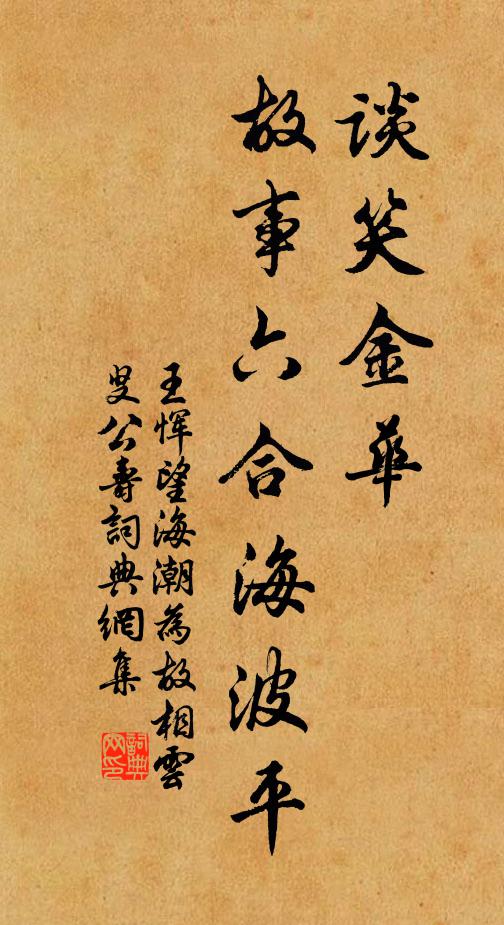 谈笑金華
故事六合海波平
王惲望海潮為故相雲
叟公壽詞典網集
詞典網印